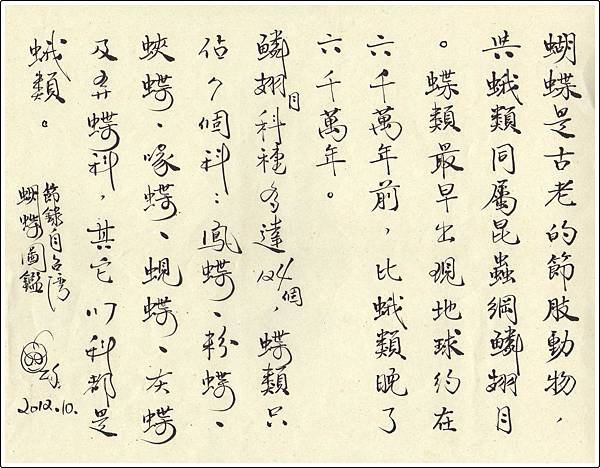 蝴蝶是古老的節肢動物，
與蛾類同屬昆蟲綱鱗翅目
。蝶類最早出現地球約在
六千萬年前，比蛾類晚了
六千萬年。
鱗翅目科種多達124個，蝶類只
佔7個科：鳳蝶、粉蝶、
蛺蝶、喙蝶、蜆蝶、灰蝶
及弄蝶科，其它117科都是
蛾類。
節錄自台灣
蝴蝶圖鑑
2012.10.